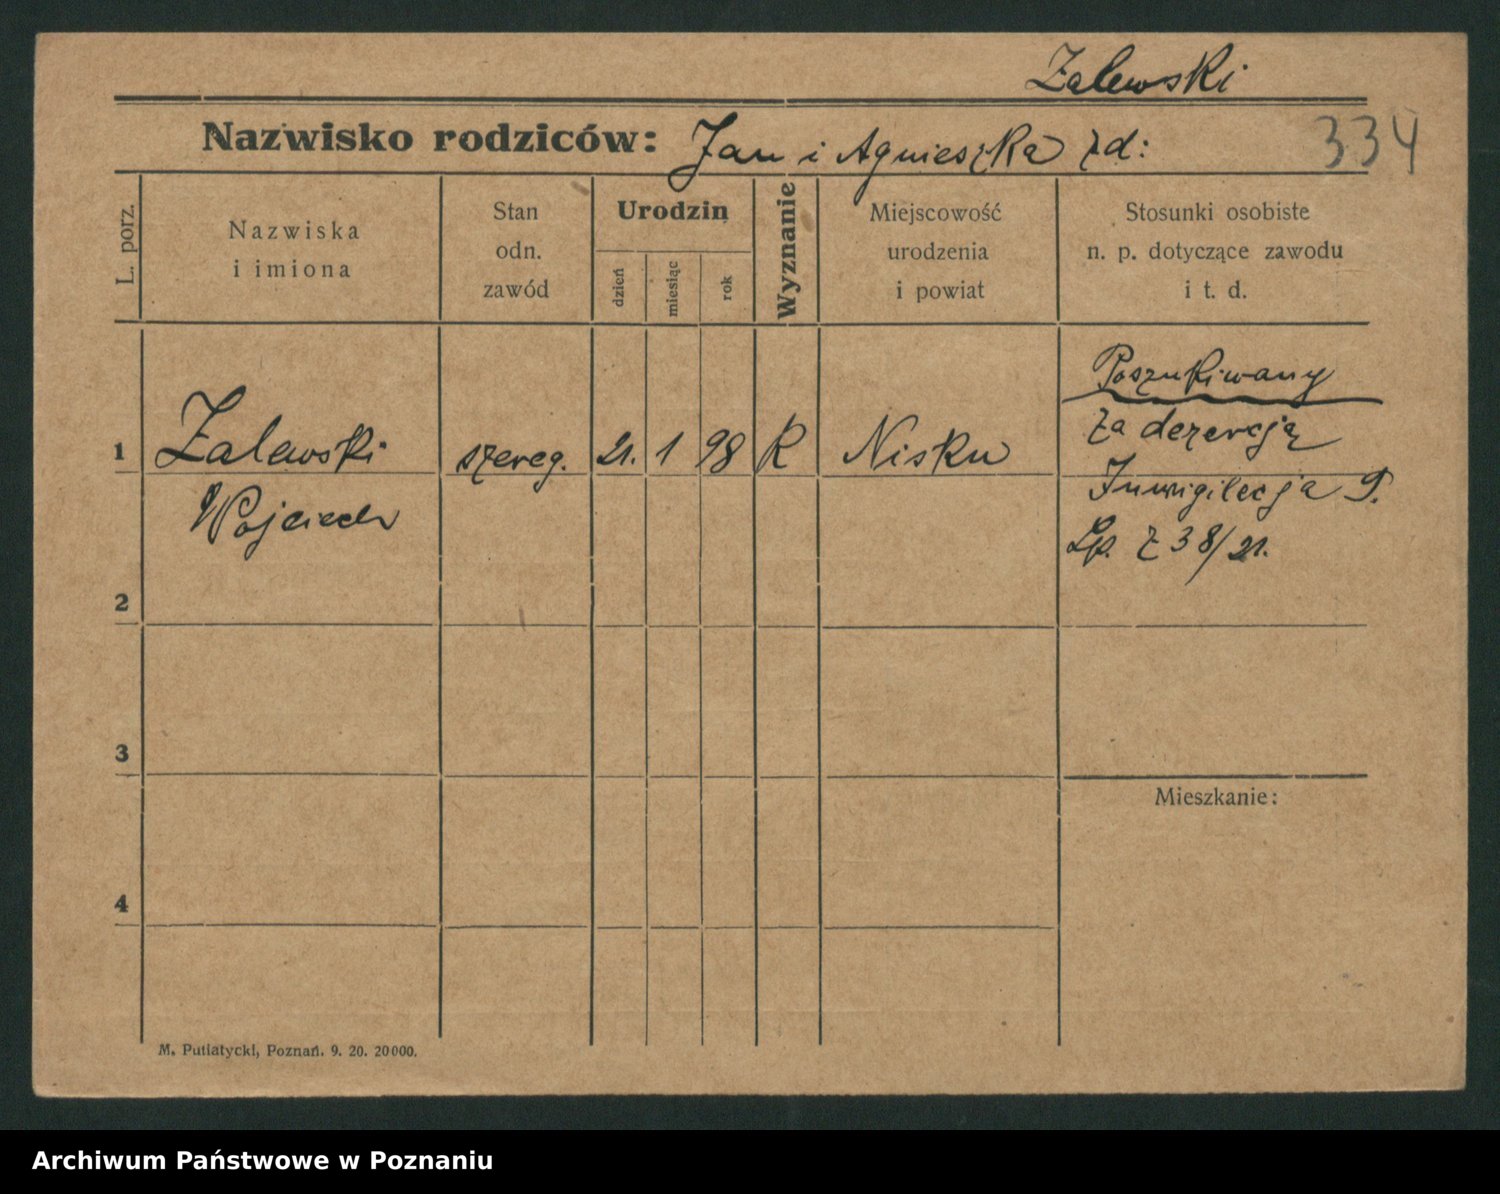 Zalewski
Nazwisko rodziców: Jan i Agnieszka zd:
334
L. porz.
Nazwiska
i imiona
Stan
odn.
zawód
Urodzin
dzień
miesiąc
rok
Wyznanie
Miejscowość
urodzenia
i powiat
Stosunki osobiste
n. p. dotyczące zawodu
i t. d.
1 Zalewski szereg. 21. 1 98 R Nisku
Wojciech
Poszukiwany
za dezercją
Inwigilacja P.
Lp. Z 38/21.
2
3
Mieszkanie:
4
M. Putiatycki, Poznań. 9. 20. 20000.
Archiwum Państwowe w Poznaniu